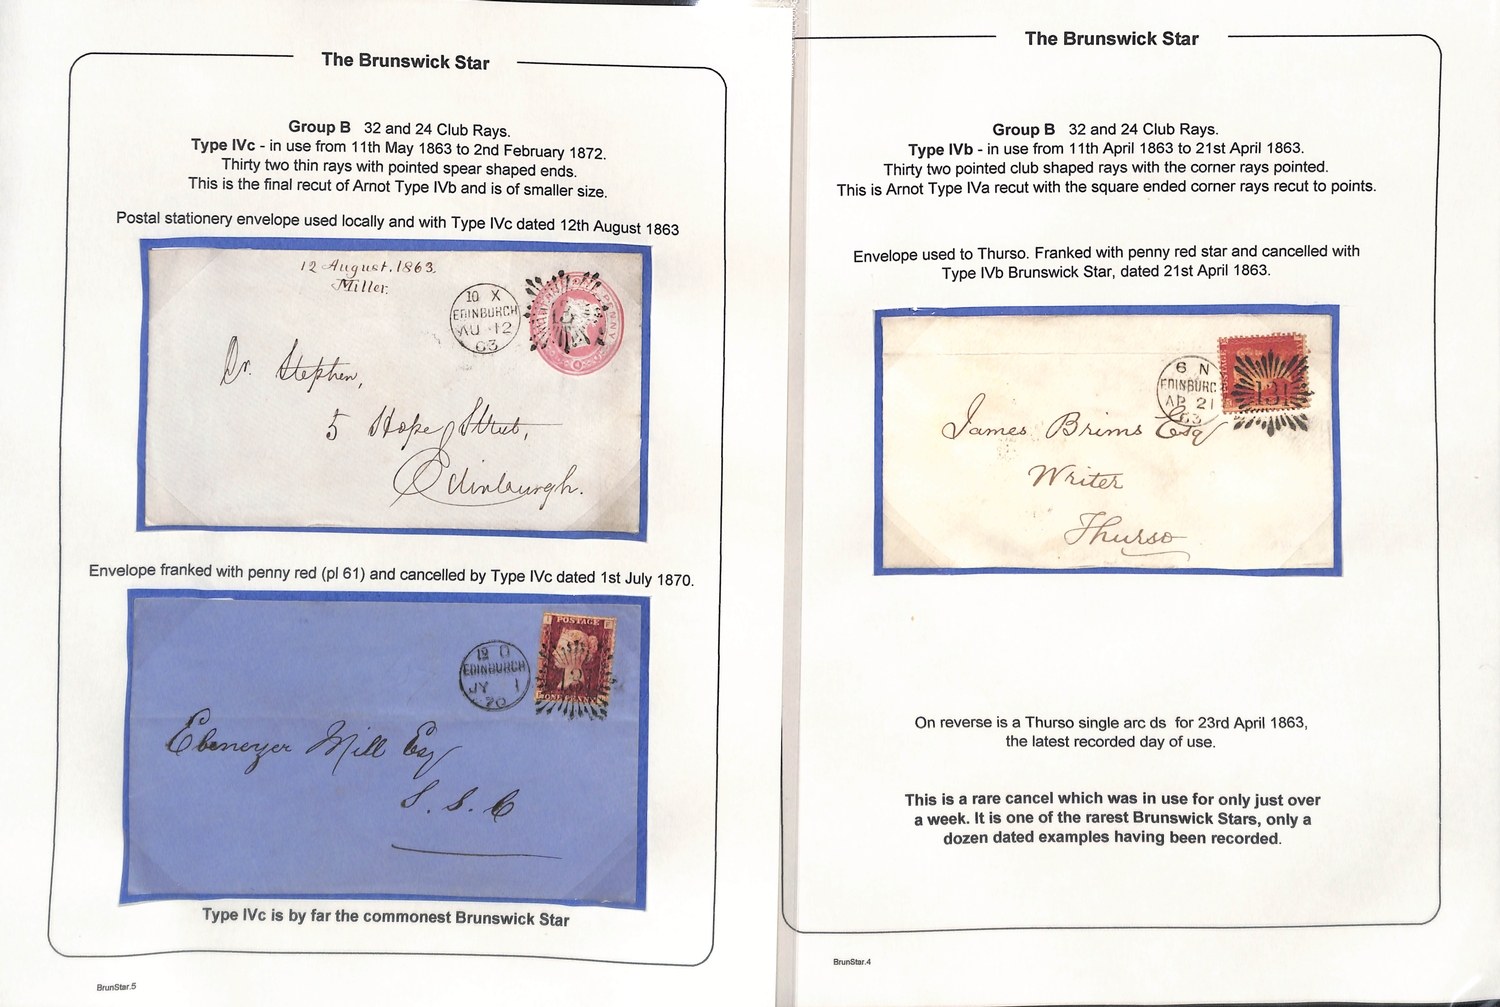 The Brunswick Star
Group B 32 and 24 Club Rays.
Type IVc - in use from 11th May 1863 to 2nd February 1872.
Thirty two thin rays with pointed spear shaped ends.
This is the final recut of Arnot Type IVb and is of smaller size.
Postal stationery envelope used locally and with Type IVc dated 12th August 1863
12 August. 1863.
Miller.
10 X
EDINBURGH
AU 12
63
Dr. Stephen,
5 Hope Street,
Edinburgh.
Envelope franked with penny red (pl 61) and cancelled by Type IVc dated 1st July 1870.
POSTAGE
12 D
EDINBURGH
JY 1
70
131
Ebenezer Mill Esq
S. S. C
Type IVc is by far the commonest Brunswick Star
BrunStar.5
The Brunswick Star
Group B 32 and 24 Club Rays.
Type IVb - in use from 11th April 1863 to 21st April 1863.
Thirty two pointed club shaped rays with the corner rays pointed.
This is Arnot Type IVa recut with the square ended corner rays recut to points.
Envelope used to Thurso. Franked with penny red star and cancelled with
Type IVb Brunswick Star, dated 21st April 1863.
6 N
EDINBURG
AP 21
63
131
James Brims Esq
Writer
Thurso
On reverse is a Thurso single arc ds for 23rd April 1863,
the latest recorded day of use.
This is a rare cancel which was in use for only just over
a week. It is one of the rarest Brunswick Stars, only a
dozen dated examples having been recorded.
BrunStar.4